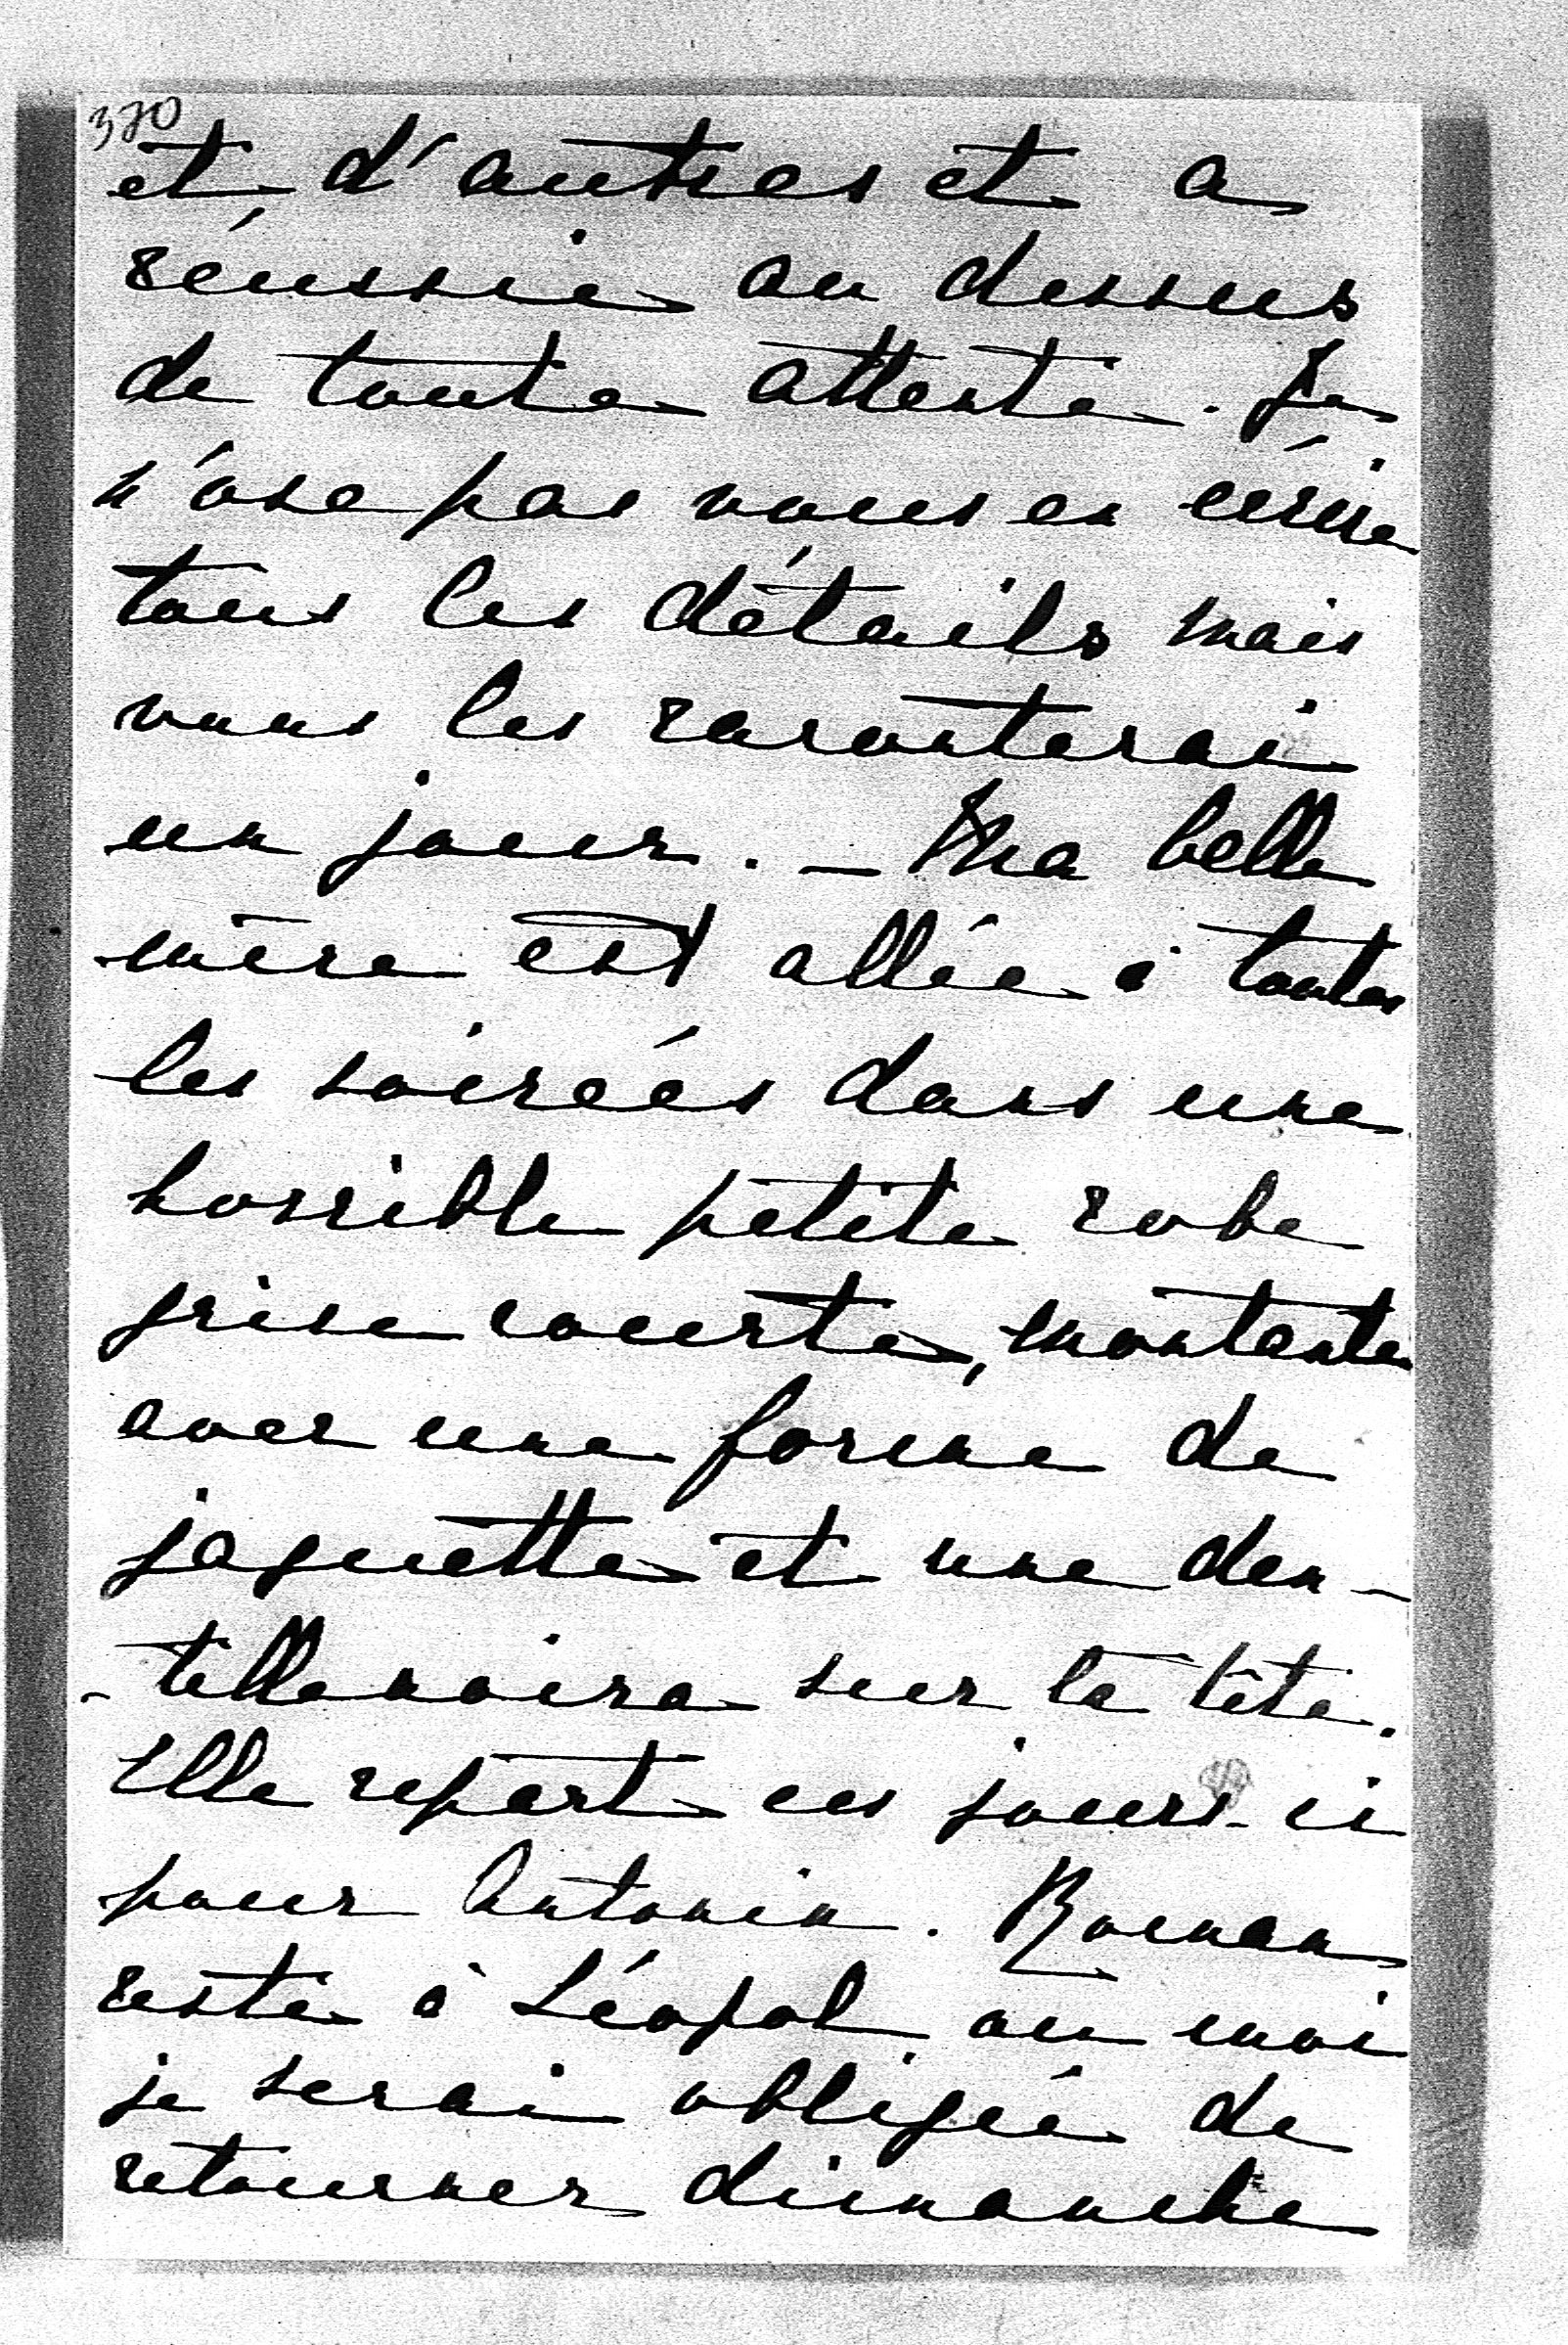 370
et d'autres et a
réussie au dessus
de toute attente. Je
n'ose pas vous en écrire
tous les détails mais
vous les raconterai
un jour. — Ma belle
mère est allée à toutes
les soirées dans une
horrible petite robe
grise courte, montante
avec une forme de
jaquette et une den-
-telle noire sur la tête.
Elle repart ces jours-ci
pour Antonin. Roman
reste à Léopol, où moi
je serai obligée de
retourner dimanche